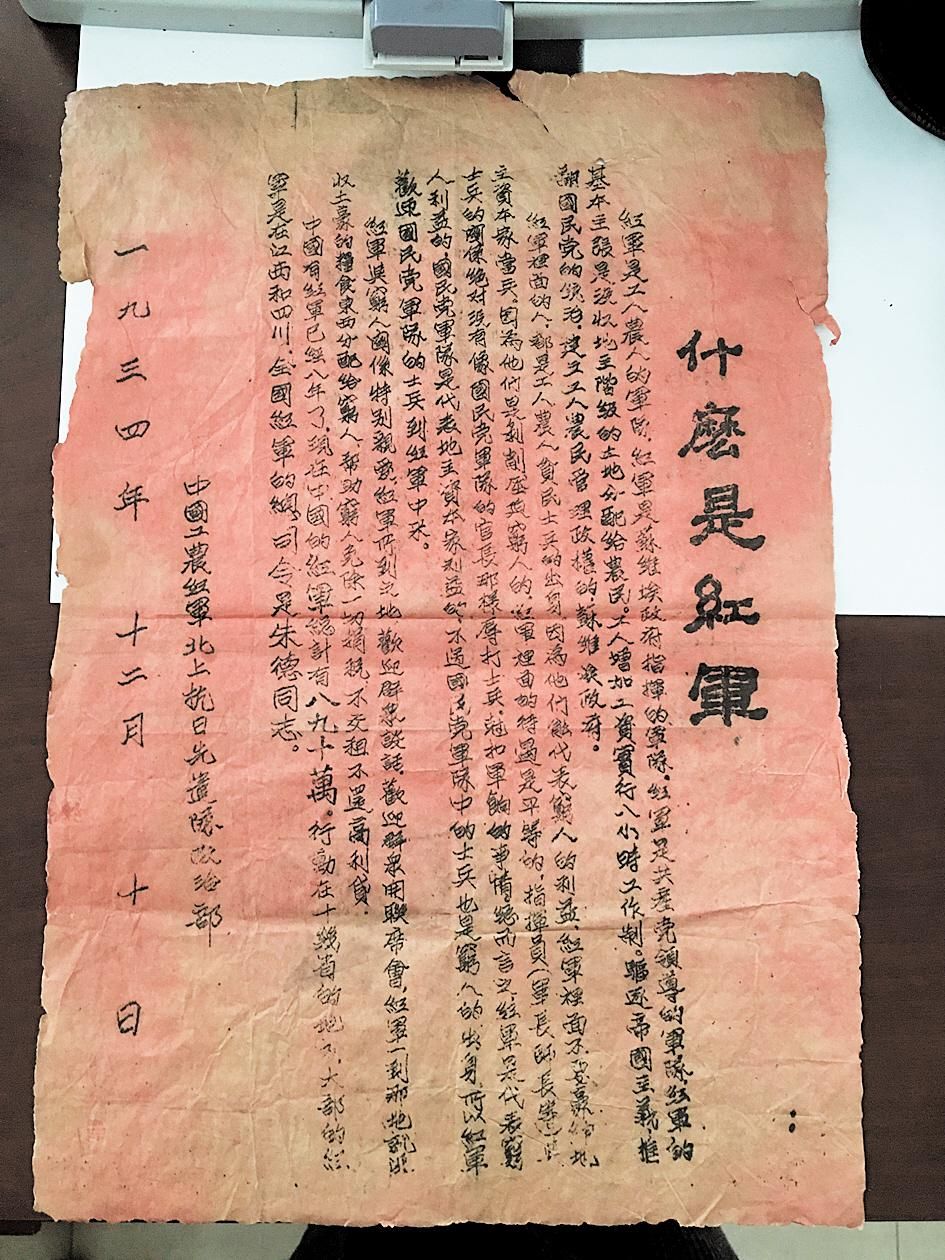 什麽是紅軍
紅軍是工人農人的軍隊，紅軍是蘇維埃政府指揮的軍隊，紅軍是共產党領導的軍隊，紅軍的
基本主張是沒收地主階級的土地分配給農民。工人增加工資實行八小時工作制。驅逐帝國主義推
翻國民党的統治，建立工人農民管理政權的，蘇維埃政府。
紅軍裡面的人，都是工人農人貧民士兵的出身，因為他們能代表窮人的利益，紅軍裡面不要豪紳地
主資本家當兵。因為他們是剝削壓迫窮人的，紅軍裡面的待遇是平等的，指揮員（軍長師長
士兵的關係絕對沒有像國民党軍隊的官長那樣辱打士兵，尅扣軍餉的事情，總而言之，紅軍是代表窮
人利益的，國民党軍隊是代表地主資本家利益的，不過國民党軍隊中的士兵也是窮人的出身，所以紅軍
歡迎國民党軍隊的士兵到紅軍中來。
紅軍與窮人關係特別親密，紅軍所到之地歡迎群衆談話，歡迎群衆開聯席會，紅軍一到那地就
收土豪的糧食東西分配給窮人，幫助窮人免除一切捐税，不交租不還高利貸。
中國有紅軍已經八年了，現在中國的紅軍總計有八九十萬。行動在十幾省的地下，大部的紅
軍是在江西和四川，全國紅軍的總司令是朱德同志。
中國工農紅軍北上抗日先遣隊政治部
一九三四年十二月十日